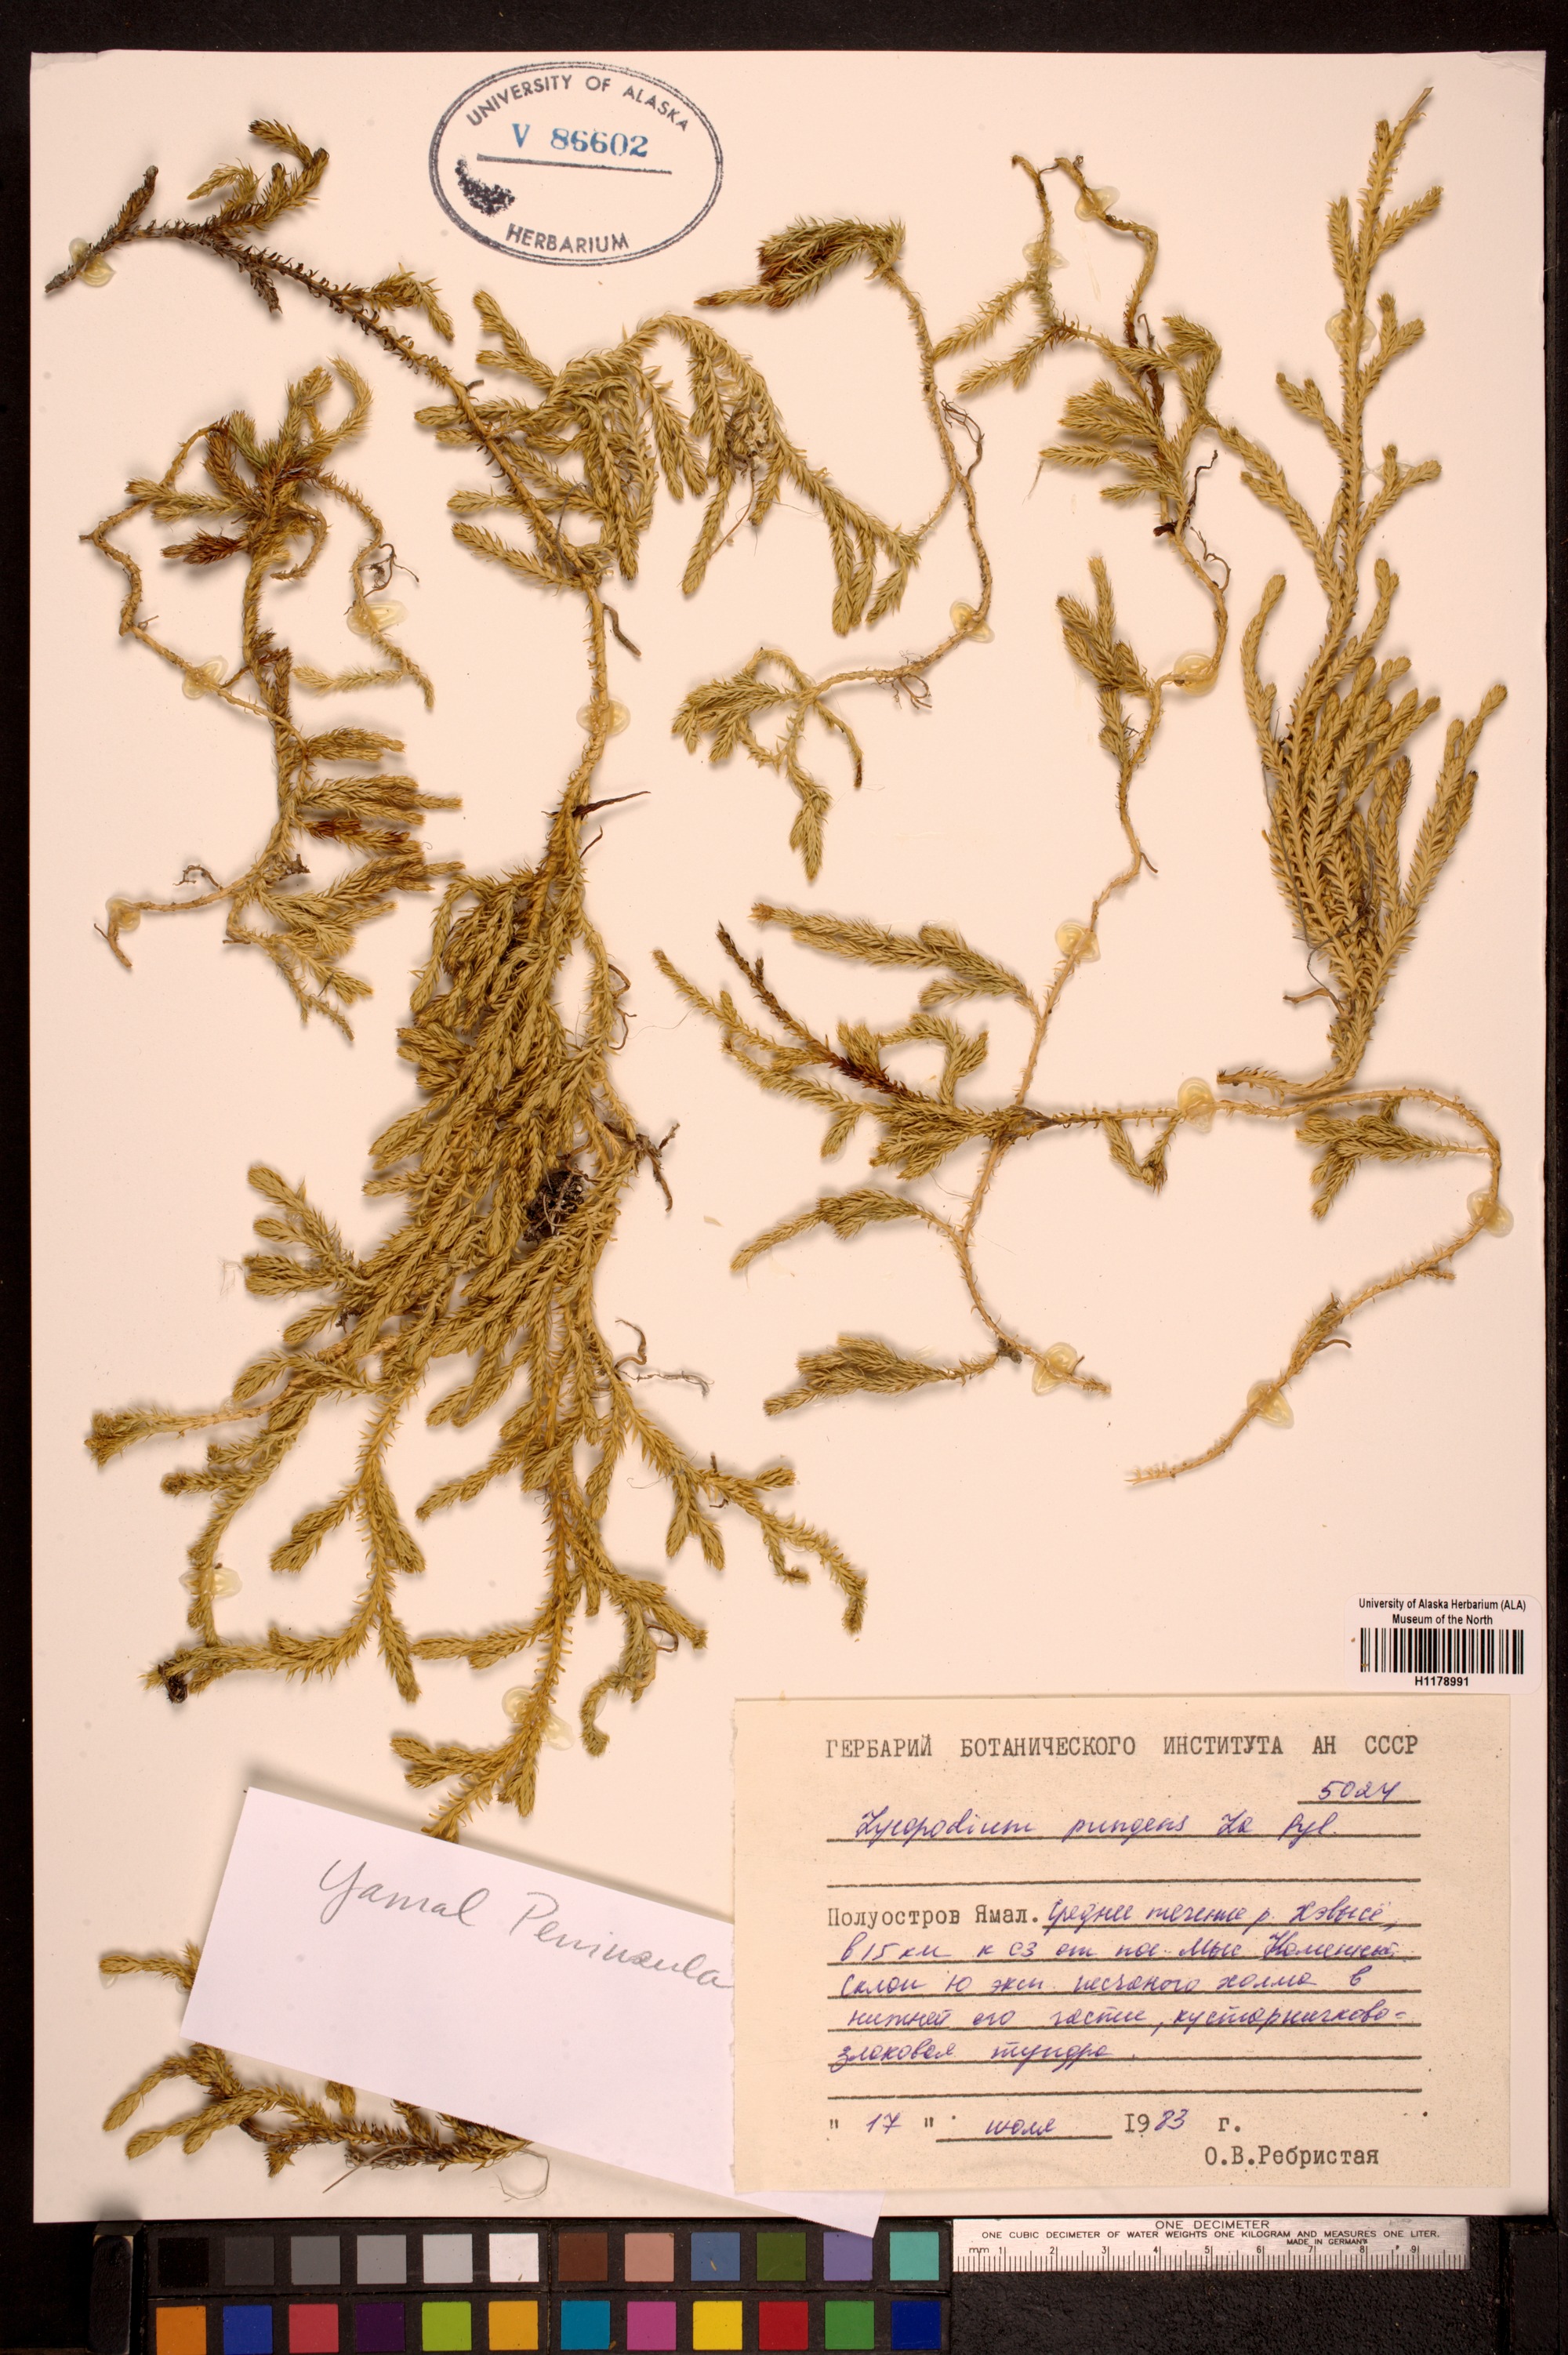 UNIVERSITY OF ALASKA
V 86602
HERBARIUM
University of Alaska Herbarium (ALA)
Museum of the North
H1178991
ГЕРБАРИЙ БОТАНИЧЕСКОГО ИНСТИТУТА АН СССР
5024
Lycopodium pungens La Pyl.
Полуостров Ямал. Среднее течение р. Хэвысё,
в 15 км к СЗ от пос. Мыс Каменный.
Склон Ю эксп. песчаного холма в
нижней его части, кустарничково-
злаковая тундра.
" 17 " июля 1983 г.
О.В.Ребристая
Yamal Peninsula
ONE DECIMETER
ONE CUBIC DECIMETER OF WATER WEIGHTS ONE KILOGRAM AND MEASURES ONE LITER.
MADE IN GERMANY
mm 1 2 3 4 5 6 7 8 9